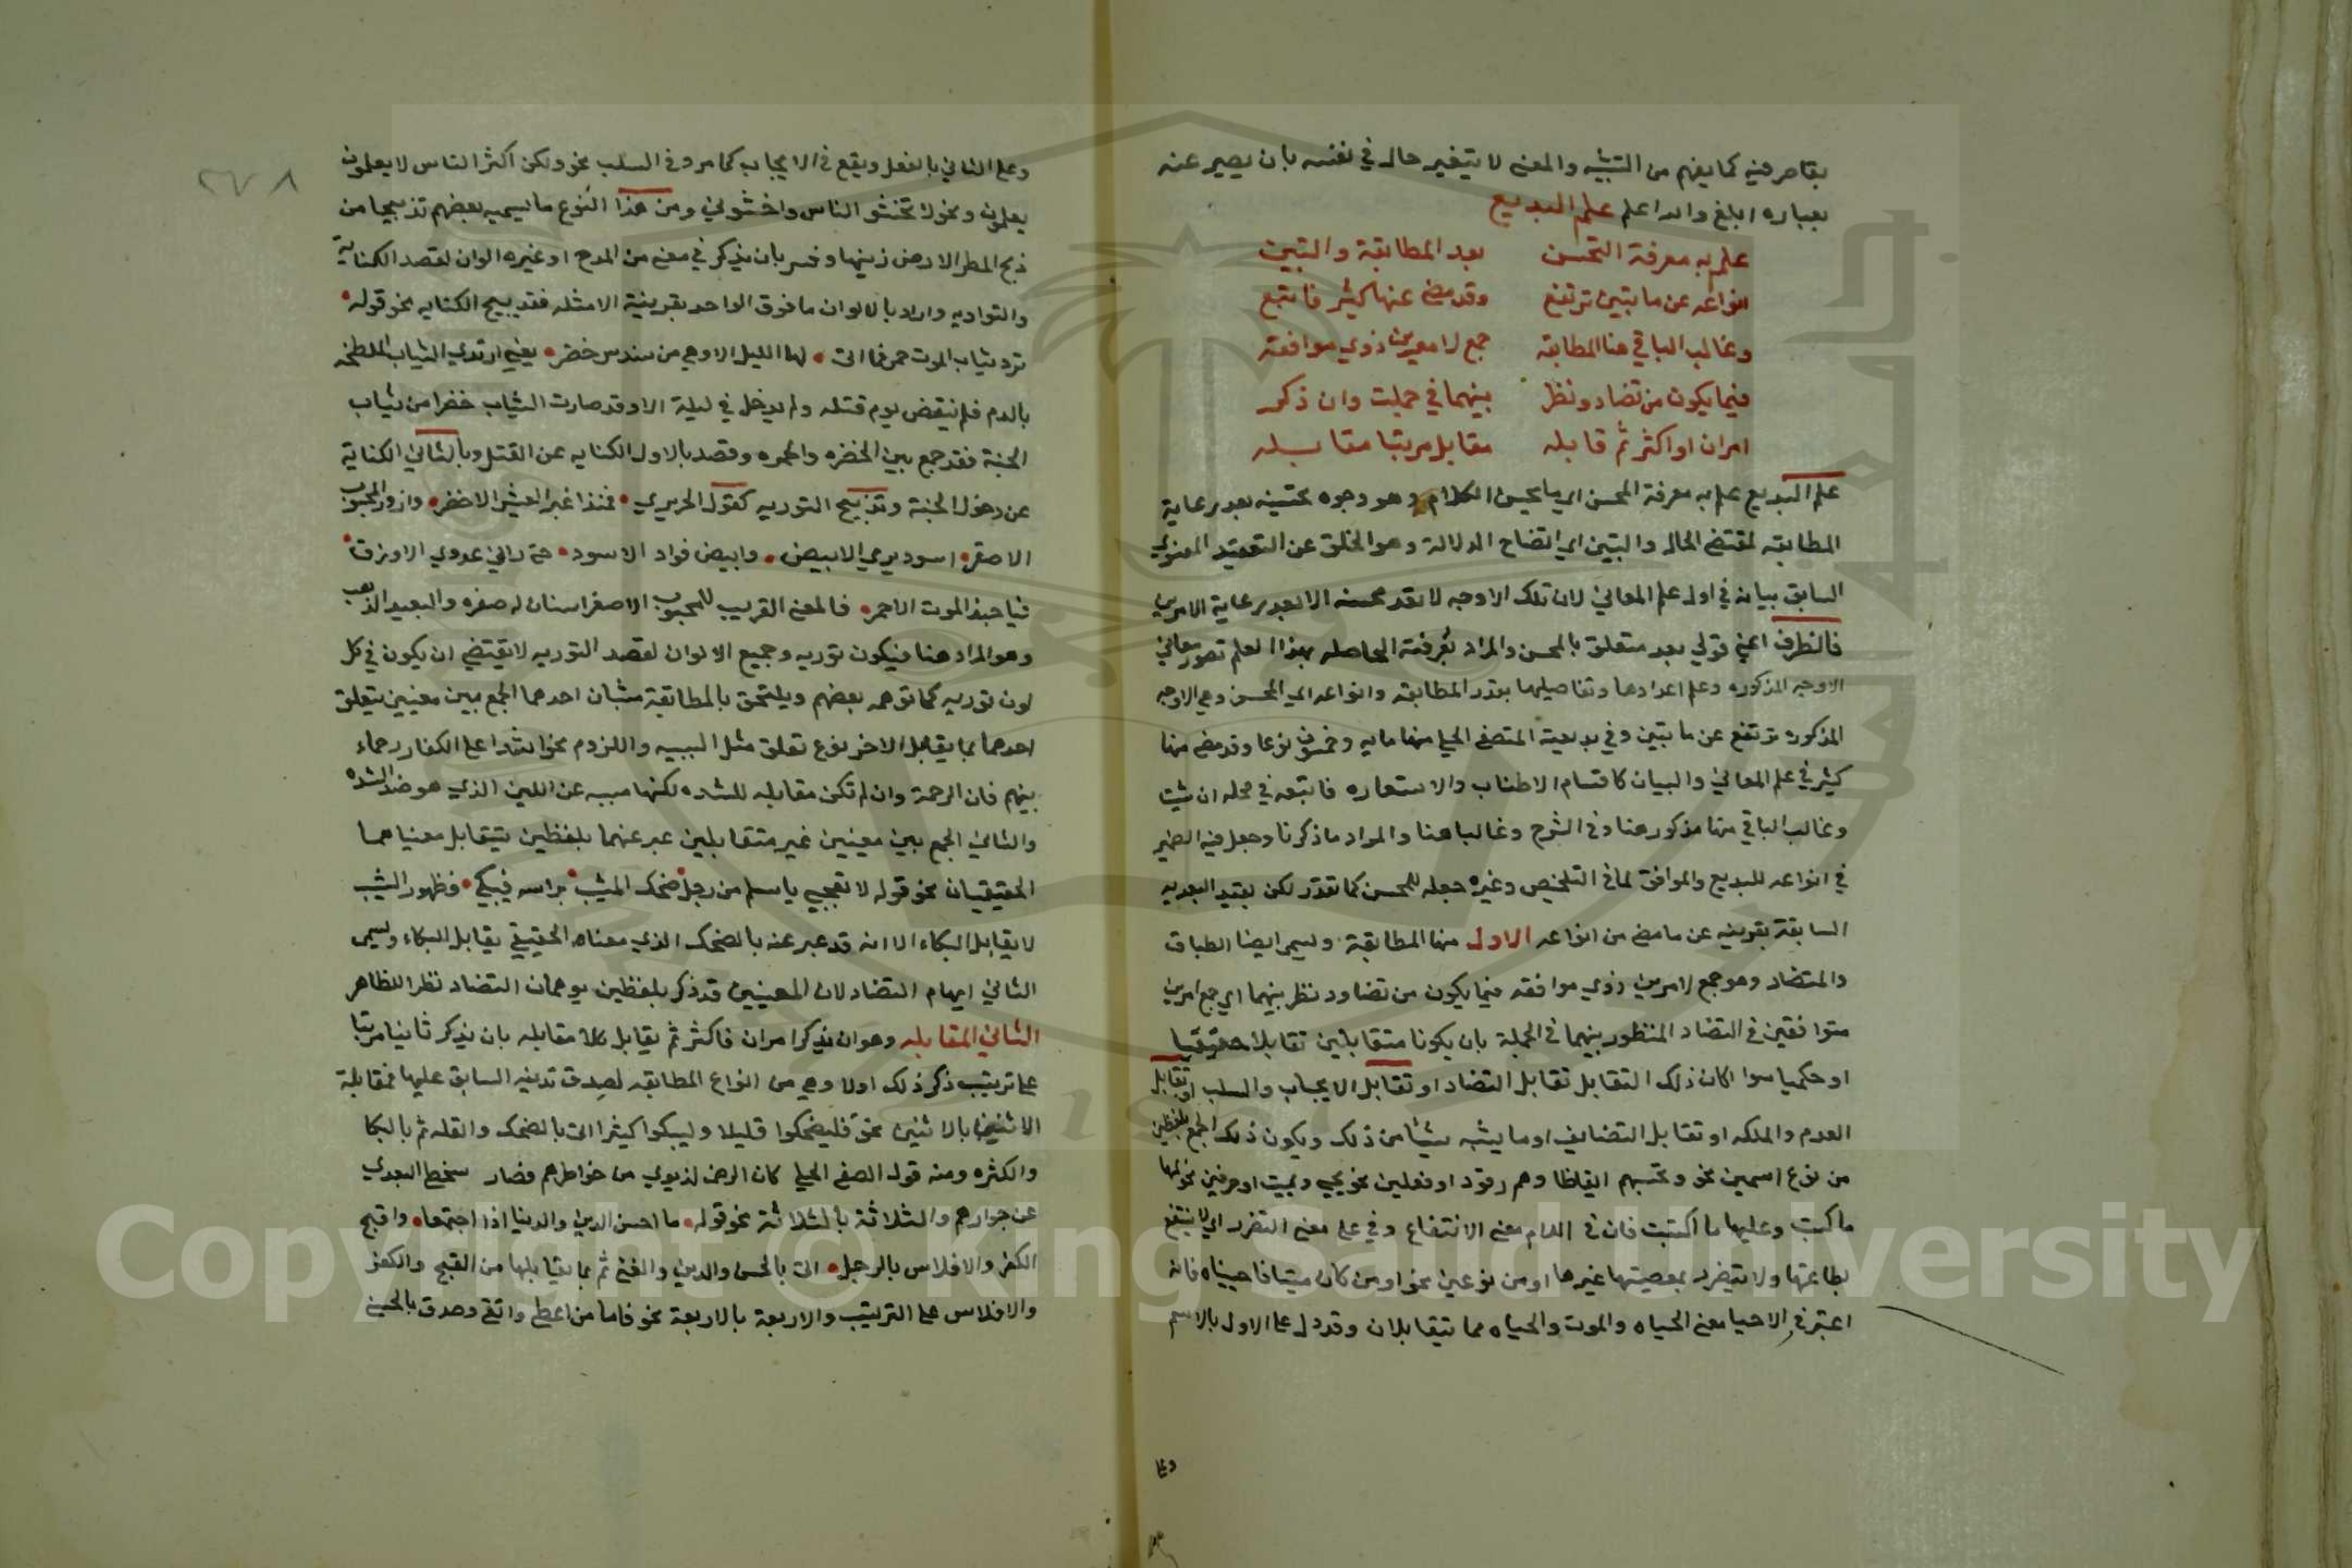 بقاصر فيه كما يفهم من التشبيه والمعنى لا يتغير حاله في نفسه بان يصير عنه
بعباره ابلغ والله اعلم علم البديع
علم به معرفة التحسين بعد المطابقة والتبيين
انواعه عن مايتين ترتفع وقد مضى عنها كثير فاتبع
وغالب الباقي هنا المطابقه جمع لامرين ذوي موافقة
فيما يكون من تضاد ونظر بينهما في جملة وان ذكر
امران او اكثر ثم قابله مقابل مرتبا مقابله
علم البديع علم به معرفة المحسن اي ما يحسن الكلام وهو وجوه تحسينه بعد رعاية
المطابقه لمقتضى الحال والتبيين اي اتضاح الدلالة وهو الخلو عن التعقيد المعنوي
السابق بيانه في اول علم المعاني لان تلك الاوجه لا تعد محسنه الا بعد رعاية الامرين
فالظرف اعني قولي بعد متعلق بالمحسن والمراد بمعرفته الحاصله بهذا العلم تصور معاني
الاوجه المذكوره وعلم اعدادها وتفاصيلها بقدر المطابقه وانواعه اي المحسن وهي الاوجه
المذكوره ترتفع عن مايتين وفي بديعية الصفي الحلي منها مايه وخمسون نوعا وقد مضى منها
كثير في علم المعاني والبيان كاقسام الاطناب والاستعاره فاتبعه في محله ان شيت
وغالب الباقي منها مذكور هنا وفي الشرح وغالبا هنا والمراد ما ذكرنا وجعل فيه الضمير
في انواعه للبديع والموافق لما في التلخيص وغيره جعله للمحسن كما تقرر لكن بقيد البعديه
السابقة بقرينه عن ما مضى من انواعه الاول منها المطابقة وليسمى ايضا الطباق
والمتضاد وهو جمع لامرين ذوي موافقه فيما يكون من تضاد ونظر بينهما اي جمع امرين
متوافقين في التضاد المنظور بينهما في الجملة بان يكونا متقابلين تقابلا حقيقيا
او حكميا سوا كان ذلك التقابل تقابل التضاد او تقابل الايجاب والسلب او تقابل
العدم والملكه او تقابل التضايف او ما يشبه شيئا من ذلك ويكون ذلك الجمع بلفظين
من نوع اسمين نحو وتحسبهم ايقاظا وهم رقود او فعلين نحو يحيي ويميت او حرفين نحو لها
ما كسبت وعليها ما اكتسبت فان في اللام معنى الانتفاع وفي على معنى التضرر اي لا ينتفع
بطاعتها ولا يتضرر بمعصيتها غيرها او من نوعين نحو او من كان ميتا فاحييناه فانه
اعتبر في الاحيا معنى الحياه والموت والحياه مما يتقابلان وقد دل على الاول بالاسم
وعلى
٢٧٨
وعلى الثاني بالفعل ويقع في الايجاب كما مر وفي السلب نحو ولكن اكثر الناس لا يعلمون
يعلمون ونحو لا تخشوا الناس واخشوني ومن هذا النوع ما يسميه بعضهم تدبيجا من
دبج المطر الارض زينها وفسر بان يذكر في معنى من المدح او غيره الوان لقصد الكناية
والتواريه واراد بالالوان ما فوق الواحد بقرينة الامثله فتدبيج الكنايه نحو قوله
تردى ثياب الموت حمرا فما اتى لها الليل الا وهي من سندس خضر يعني ارتدى الثياب الملطخه
بالدم فلم ينقض يوم قتله ولم يدخل في ليلة الا وقد صارت الثياب خضرا من ثياب
الجنة فقد جمع بين الخضره والحمره وقصد بالاول الكنايه عن القتل وبالثاني الكناية
عن دخول الجنة وتدبيج التوريه كقول الحريري فمذ اغبر العيش الاخضر وازور المحبوب
الاصفر اسود يومي الابيض وابيض فوادي الاسود حتى رثى لي عدوي الازرق
فيا حبذا الموت الاحمر فالمعنى القريب للمحبوب الاصفر انسان له صفره والبعيد الذهب
وهو المراد هنا فيكون توريه وجميع الالوان لقصد التوريه لا يقتضي ان يكون في كل
لون توريه كما توهمه بعضهم ويلتحق بالمطابقة شيئان احدهما الجمع بين معنيين يتعلق
احدهما بما يقابل الاخر نوع تعلق مثل السببيه واللزوم نحو اشدا على الكفار رحماء
بينهم فان الرحمة وان لم تكن مقابله للشده لكنها مسببه عن اللين الذي هو ضد الشده
والثاني الجمع بين معنيين غير متقابلين عبر عنهما بلفظين يتقابل معنياهما
الحقيقيان نحو قوله لا تعجبي يا سلم من رجل ضحك المشيب براسه فبكى فظهور الشيب
لا يقابل البكاء الا انه قد عبر عنه بالضحك الذي معناه الحقيقي يقابل البكاء ويسمى
الثاني ايهام التضاد لان المعنيين قد ذكر بلفظين يوهمان التضاد نظرا للظاهر
الثاني المقابله وهو ان يذكر امران فاكثر ثم يقابل كلا مقابله بان يذكر ثانيا مرتبا
على ترتيب ذكر ذلك اولا وهي من انواع المطابقه لصدق تعريفه السابق عليها فمقابلة
الاثنين بالاثنين نحو فليضحكوا قليلا وليبكوا كثيرا اتى بالضحك والقله ثم بالبكا
والكثره ومنه قول الصفي الحلي كان الرضى لدنوي من خواطرهم فصار سخطي لبعدي
عن جوارهم والثلاثة بالثلاثة نحو قوله ما احسن الدين والدنيا اذا اجتمعا واقبح
الكفر والافلاس بالرجل اتى بالحسن والدين والغنى ثم بما يقابلها من القبح والكفر
والافلاس على الترتيب والاربعة بالاربعة نحو فاما من اعطى واتقى وصدق بالحسنى
Copyright © King Saud University